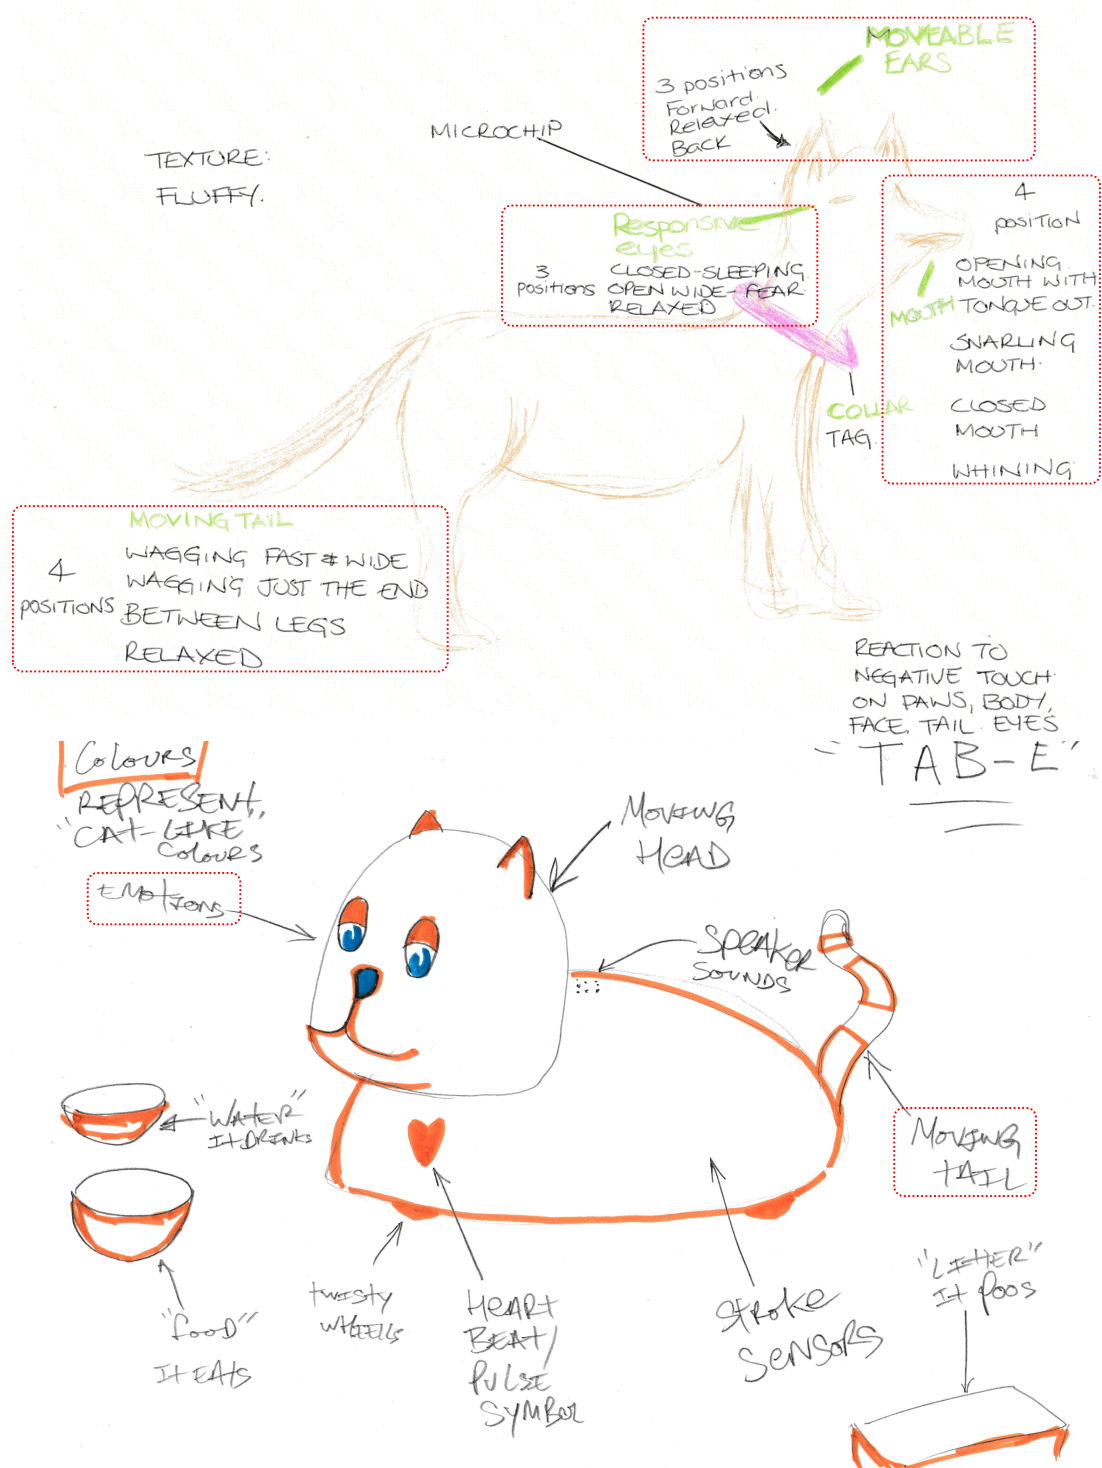 MOVEABLE
EARS
3 positions
Forward.
Relaxed.
Back
MICROCHIP
TEXTURE:
FLUFFY.
Responsive
eyes
3
positions
CLOSED-SLEEPING
OPEN WIDE-FEAR
RELAXED
4
position
MOUTH
OPENING
MOUTH WITH
TONGUE OUT.
SNARLING
MOUTH.
CLOSED
MOUTH
WHINING
COLLAR
TAG.
MOVING TAIL
4
POSITIONS
WAGGING FAST & WIDE
WAGGING JUST THE END
BETWEEN LEGS
RELAXED
REACTION TO
NEGATIVE TOUCH
ON PAWS, BODY,
FACE, TAIL. EYES
"TAB-E"
COLOURS
REPRESENT
"CAT-LIKE"
COLOURS
EMOTIONS
MOVING
HEAD
SPEAKER
SOUNDS
"WATER"
IT DRINKS
MOVING
TAIL
"FOOD"
IT EATS
TWISTY
WHEELS
HEART
BEAT/
PULSE
SYMBOL
STROKE
SENSORS
"LITTER"
IT POOS